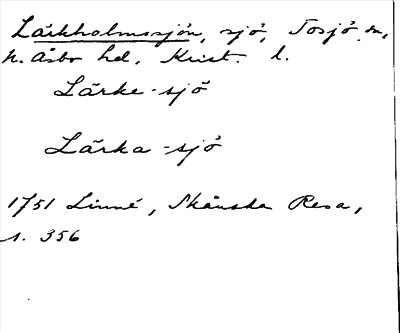 Lärkholmssjön, sjö, Tosjö sn,
N. Åsbo hd. Krist. l.
Lärke-sjö
Lärka-sjö
1751 Linné, Skånska Resa,
s. 356